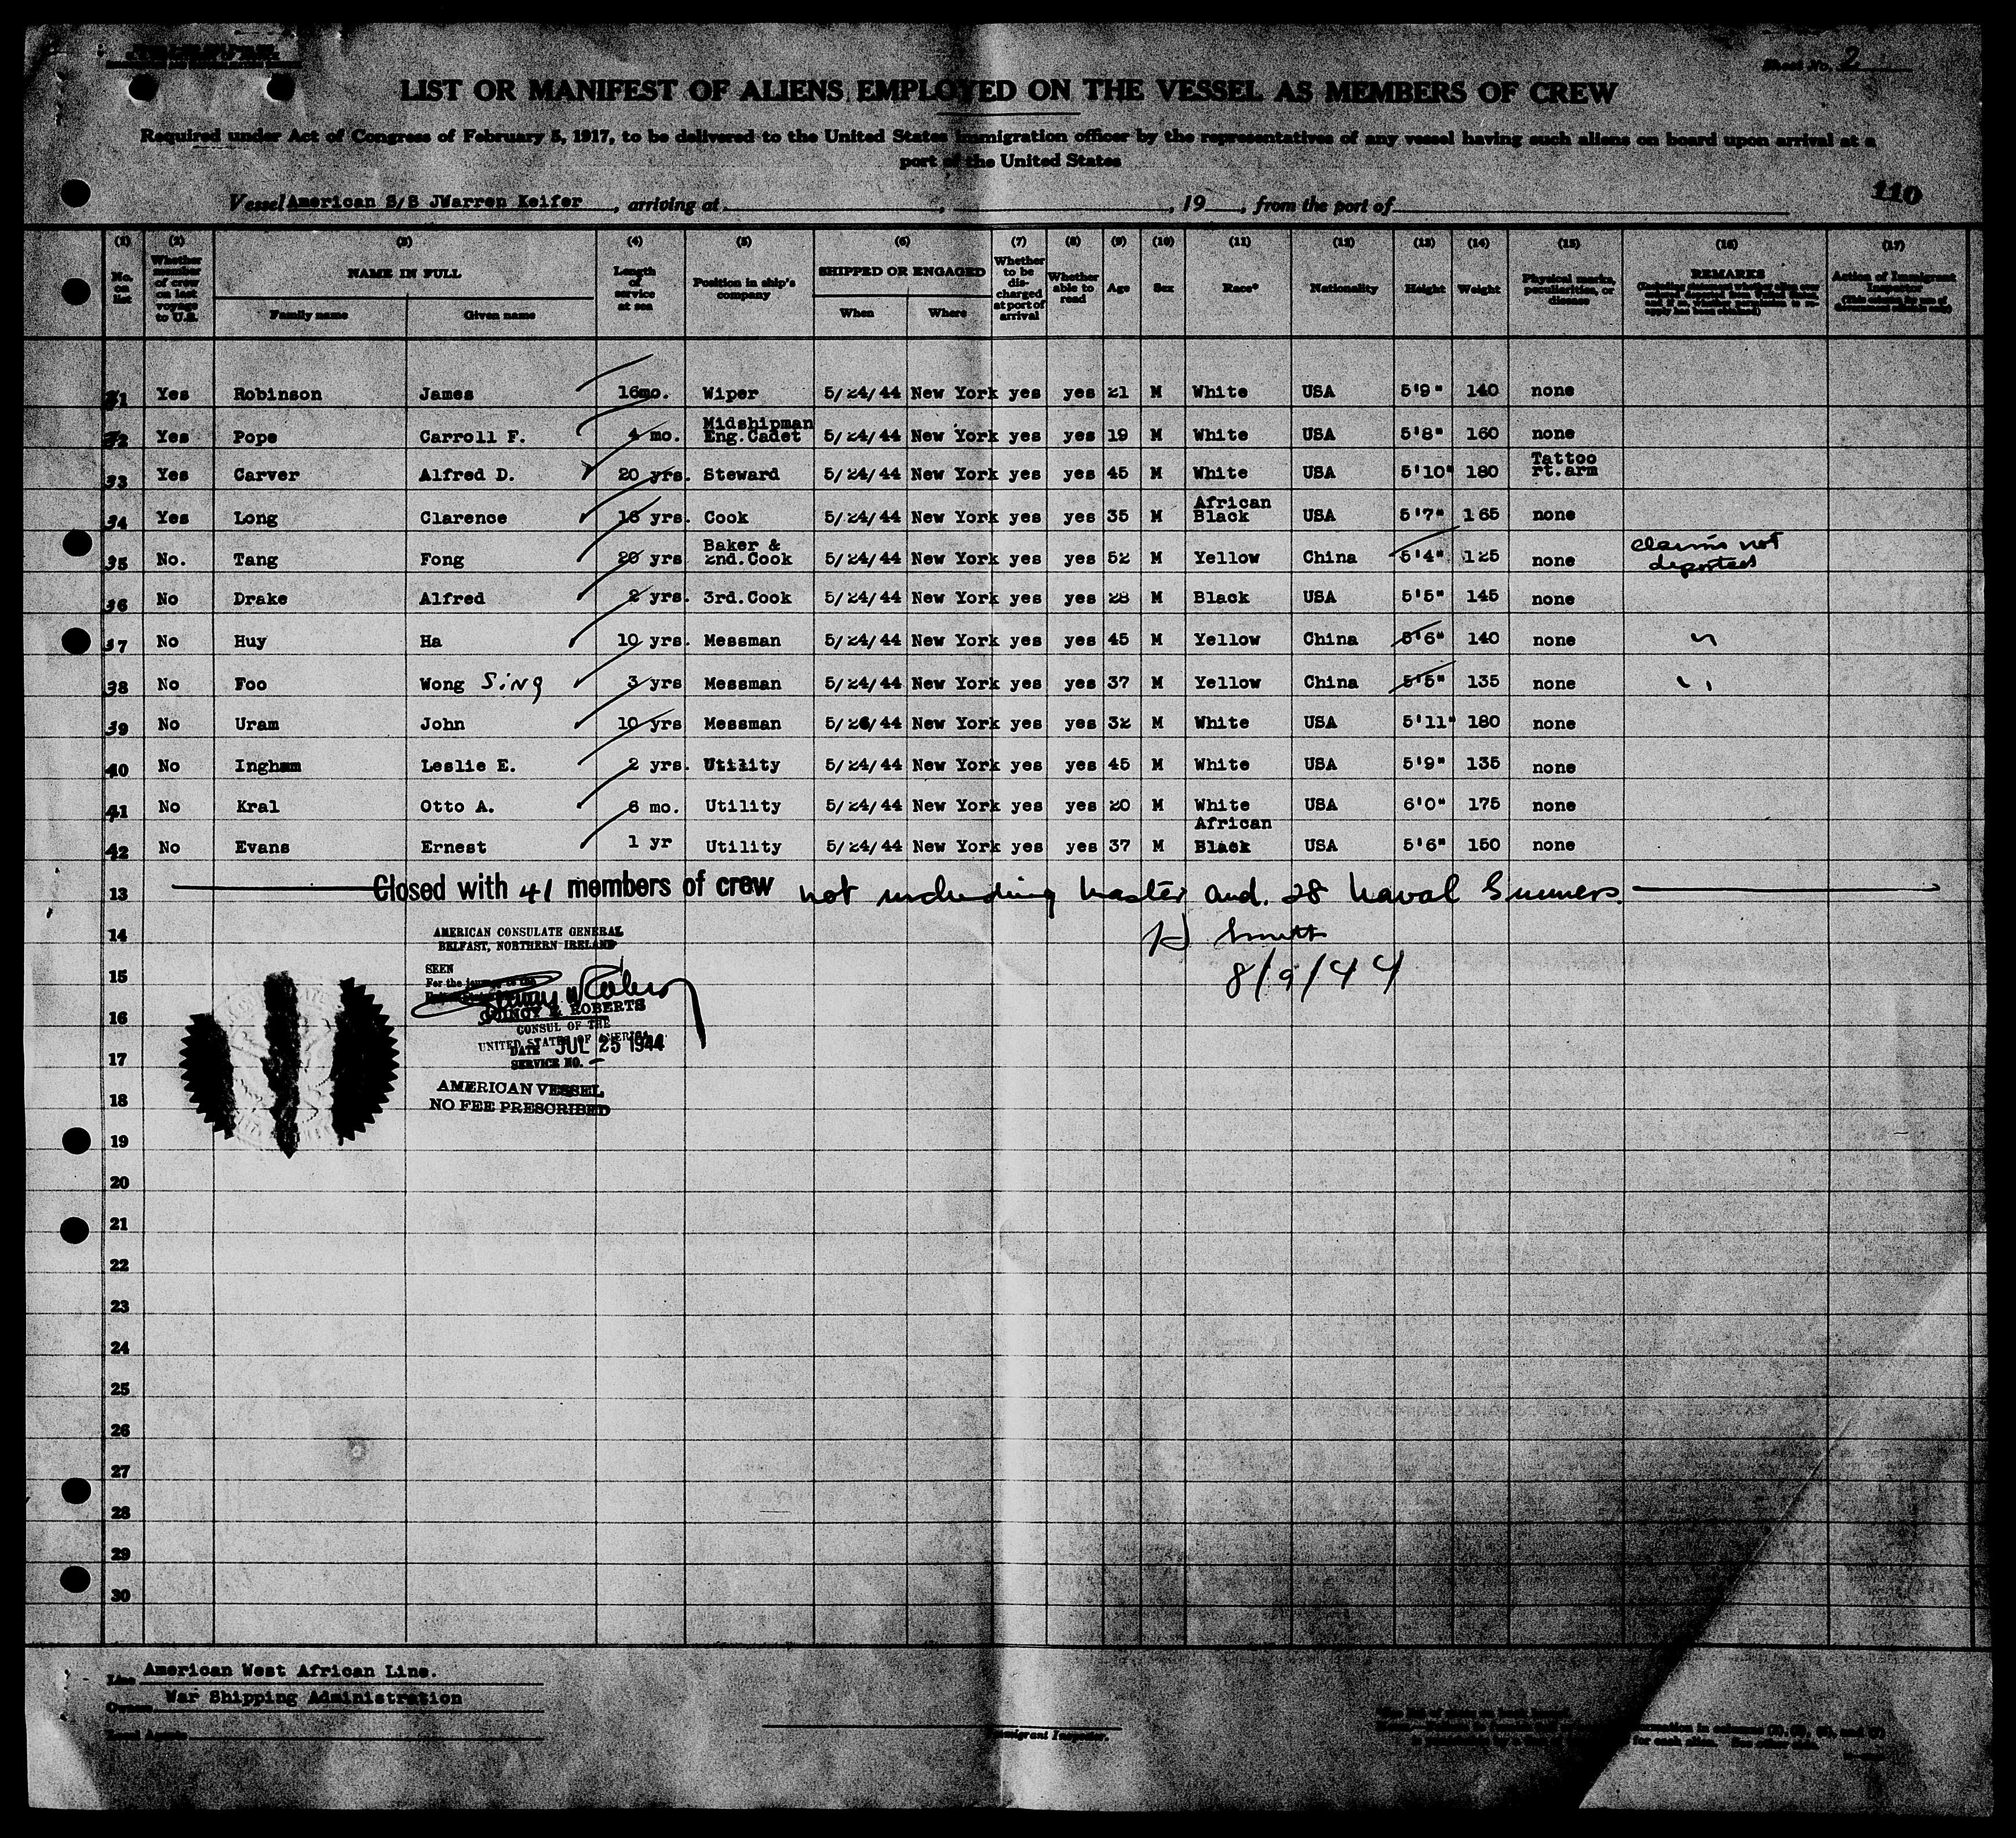 Sheet No. 2
LIST OR MANIFEST OF ALIENS EMPLOYED ON THE VESSEL AS MEMBERS OF CREW
Required under Act of Congress of February 5, 1917, to be delivered to the United States immigration officer by the representatives of any vessel having such aliens on board upon arrival at a
port of the United States
110
Vessel American S/S JWarren Keifer, arriving at , , 19 , from the port of
(1) (2) (3) (4) (5) (6) (7) (8) (9) (10) (11) (12) (13) (14) (15) (16) (17)
No. on list Whether member of crew on last voyage to U.S. NAME IN FULL Family name Given name Length of service at sea Position in ship's company SHIPPED OR ENGAGED When Where Whether to be discharged at port of arrival Whether able to read Age Sex Race* Nationality Height Weight Physical marks, peculiarities, or disease REMARKS Action of Immigrant Inspector
31 Yes Robinson James 16mo. Wiper 5/24/44 New York yes yes 21 M White USA 5'9" 140 none
32 Yes Pope Carroll F. 4 mo. Midshipman Eng.Cadet 5/24/44 New York yes yes 19 M White USA 5'8" 160 none
33 Yes Carver Alfred D. 20 yrs. Steward 5/24/44 New York yes yes 45 M White USA 5'10" 180 Tattoo rt.arm
34 Yes Long Clarence 16 yrs. Cook 5/24/44 New York yes yes 35 M African Black USA 5'7" 165 none
35 No. Tang Fong 20 yrs Baker & 2nd.Cook 5/24/44 New York yes yes 52 M Yellow China 5'4" 125 none claims not deported
36 No Drake Alfred 2 yrs. 3rd.Cook 5/24/44 New York yes yes 28 M Black USA 5'5" 145 none
37 No Huy Ha 10 yrs. Messman 5/24/44 New York yes yes 45 M Yellow China 5'6" 140 none "
38 No Foo Wong Sing 3 yrs Messman 5/24/44 New York yes yes 37 M Yellow China 5'5" 135 none "
39 No Uram John 10 yrs Messman 5/26/44 New York yes yes 32 M White USA 5'11" 180 none
40 No Ingham Leslie E. 2 yrs. Utility 5/24/44 New York yes yes 45 M White USA 5'9" 135 none
41 No Kral Otto A. 6 mo. Utility 5/24/44 New York yes yes 20 M White USA 6'0" 175 none
42 No Evans Ernest 1 yr Utility 5/24/44 New York yes yes 37 M African Black USA 5'6" 150 none
13 Closed with 41 members of crew not including Master and. 28 Naval Gunners.
14 AMERICAN CONSULATE GENERAL
BELFAST, NORTHERN IRELAND
H Smith
8/9/44
15 SEEN
For the journey to the
16 QUINCY F. ROBERTS
CONSUL OF THE
UNITED STATES OF AMERICA
DATE JUL 25 1944
17 SERVICE NO. -
AMERICAN VESSEL
18 NO FEE PRESCRIBED
19
20
21
22
23
24
25
26
27
28
29
30
Line American West African Line.
Owners War Shipping Administration
Local Agents
Immigrant Inspector.